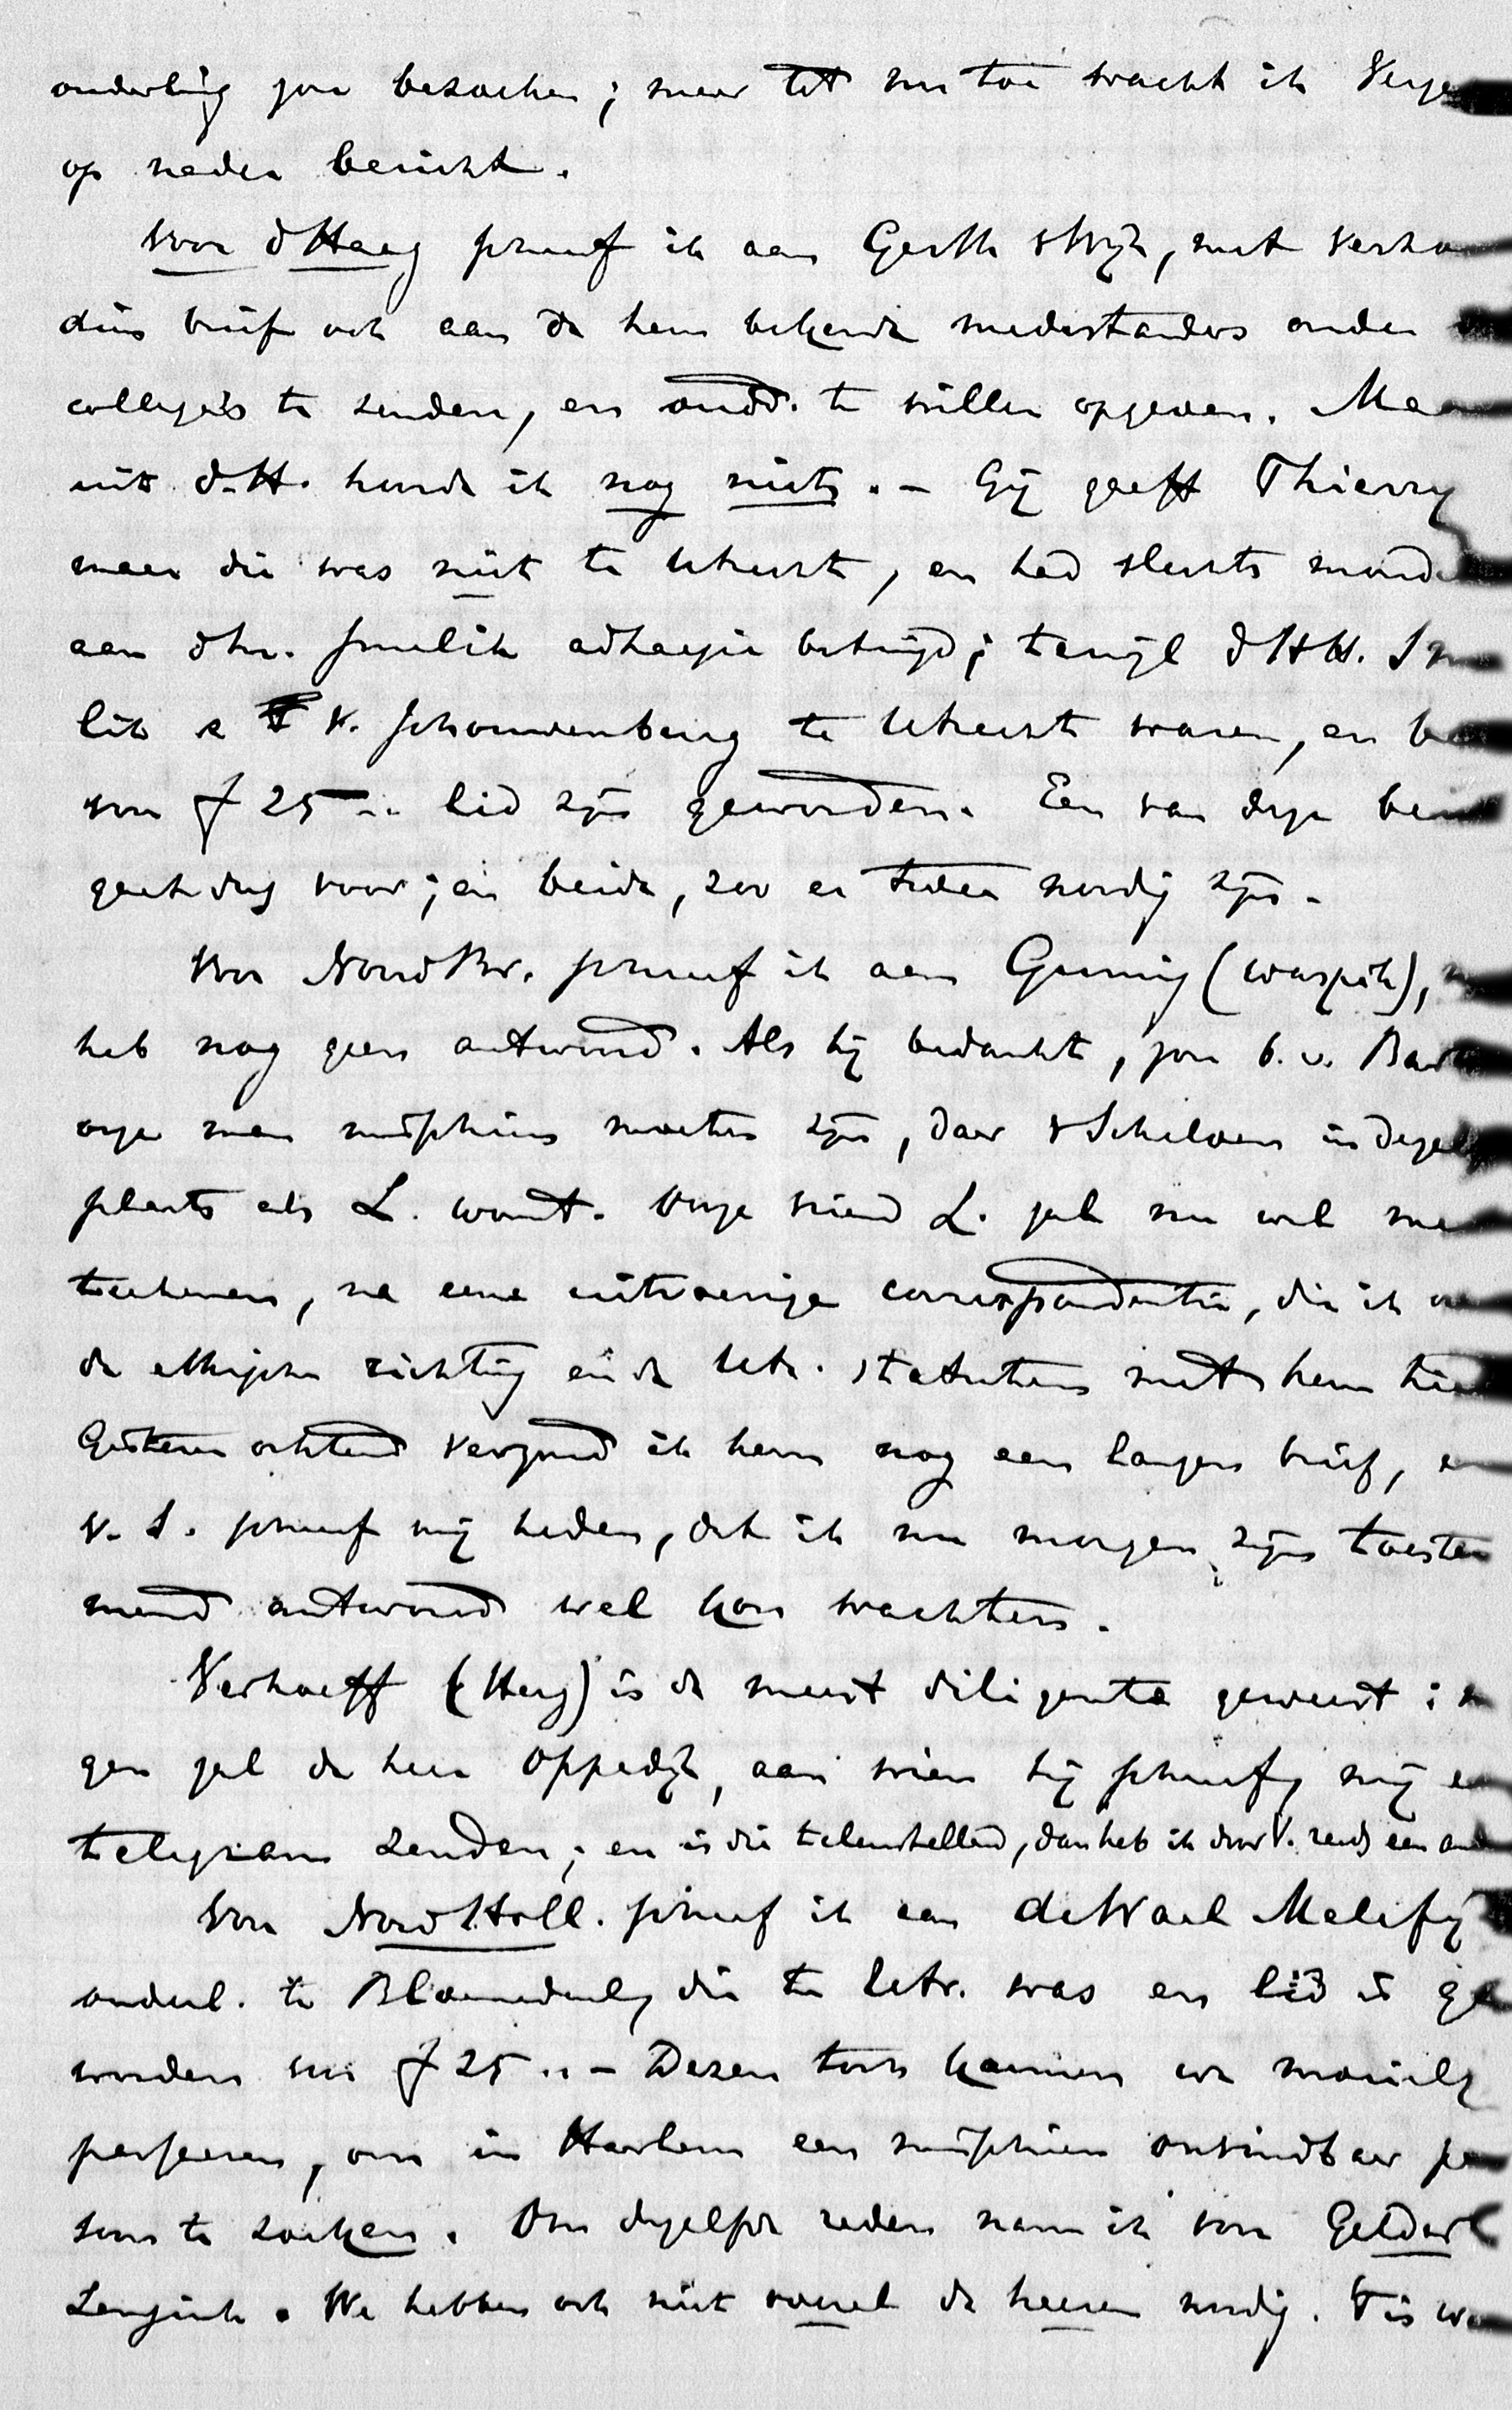 onderling zou bezoeken; maar tot nu toe wacht ik
op nader bericht.
Voor d Haag schreef ik aan Gerth v Wijk, met verzoe
dien brief ook aan de hem bekende medestanders onder
collega's te zenden, en andd. te willen opgeven. Maar
uit d. H. hoorde ik nog niets. - Gij geeft Thierry
maar die was niet te Utrecht, en had slechts mond
aan dhr. Smelik adhaesie betuigd; terwijl d HH. Sme
lik e v. Schouwenburg te Utrecht waren, en be
voor f 25 -.. lid zijn geworden. Een van deze beid
geeht dus voor; en beide, zoo er twee noodig zijn.
Voor NoordBr. schreef ik aan Gunning (Waspik),
heb nog geen antwoord. Als hij bedankt, zou b.v. Bar
oge men misschien moeten zijn, daar v Schelven in dezelf
plaats als L. woont. Onze vriend L. zal nu wel mee
teekenen, na eene uitvoerige correspondentie, die ik ove
de ethische richting en de Utr. statuten met hem hie
Gisteren ochtend verzond ik hem nog een langen brief, en
v. S. schreef mij heden, dat ik nu morgen zijn toestem
mend antwoord wel kon wachten.
Verhoeff (Haag) is de meest diligente geweest: m
gen zal de heer Oppedijk, aan wien hij schreef, mij een
telegram zenden; en is die teleurstellend, dan heb ik door V. reeds een and
Voor NoordHoll. schreef ik aan de Waal Malefij
onderl. te Bloemendaal, die te Utr. was en lid is ge
worden voor f 25 .. - Dezen toch kunnen we moeielij
passeeren, om in Haarlem een misschien onvindbaar per
soon te zoeken. Om dezelfde reden nam ik voor Gelderl
Lensink. We hebben ook niet zooveel de heeren noodig. T is wa